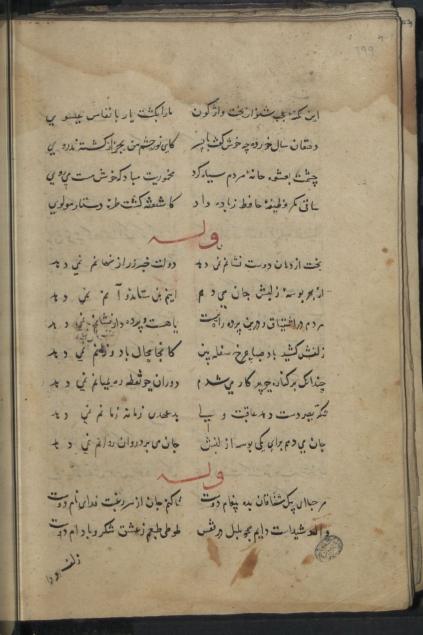 این قصهٔ عجب شنو از بخت واژگون ما را بکشت یار بانفاس عیسوی
دهقان سال خورده چه خوش گفت با پسر کای نور چشم من بجز از کشته ندروی
چشمت بعشوه خانهٔ مردم سیه کرد مخموریت مباد که خوش مست می روی
ساقی مگر وظیفهٔ حافظ زیاده داد کاشفته گشت طرهٔ دستار مولوی
وله
بخت از دهان دوست نشانم نمی دهد دولت خبر ز راز نهانم نمی دهد
از بهر بوسهٔ ز لبش جان می دهم اینم نمی ستاند و آنم نمی دهد
مردم در اشتیاق و درین پرده راه نیست یا هست و پرده دار نشانم نمی دهد
زلفش کشید باد صبا چرخ سفله بین کانجا مجال باد وزانم نمی دهد
چندانک بر کناره چو پرکار می شدم دوران چو نقطه ره بمیانم نمی دهد
شکر بصبر دست دهد عاقبت ولی بد عهدی زمانه زمانم نمی دهد
جان می دهم برای یکی بوسه از لبش جان می برد روان و نمی دهد
وله
مرحبا ای پیک مشتاقان بده پیغام دوست تا کنم جان از سر رغبت فدای نام دوست
واله و شیداست دایم همچو بلبل در قفس طوطی طبعم ز عشق شکر و بادام دوست
زلف او